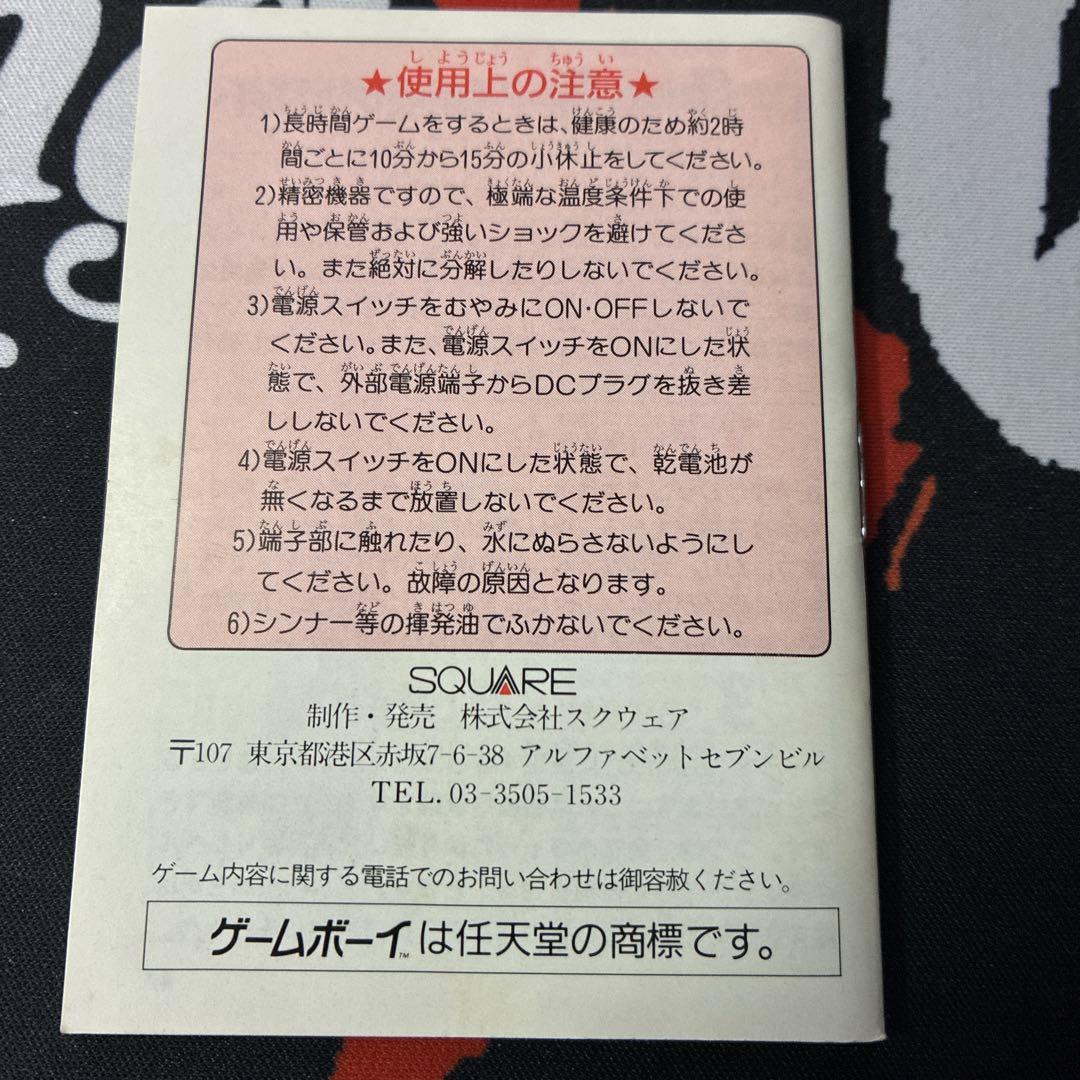 ★使用上の注意★
1)長時間ゲームをするときは、健康のため約2時
間ごとに10分から15分の小休止をしてください。
2)精密機器ですので、極端な温度条件下での使
用や保管および強いショックを避けてくださ
い。また絶対に分解したりしないでください。
3)電源スイッチをむやみにON・OFFしないで
ください。また、電源スイッチをONにした状
態で、外部電源端子からDCプラグを抜き差
ししないでください。
4)電源スイッチをONにした状態で、乾電池が
無くなるまで放置しないでください。
5)端子部に触れたり、水にぬらさないようにし
てください。故障の原因となります。
6)シンナー等の揮発油でふかないでください。
SQUARE
制作・発売 株式会社スクウェア
〒107 東京都港区赤坂7-6-38 アルファベットセブンビル
TEL. 03-3505-1533
ゲーム内容に関する電話でのお問い合わせは御容赦ください。
ゲームボーイ™は任天堂の商標です。